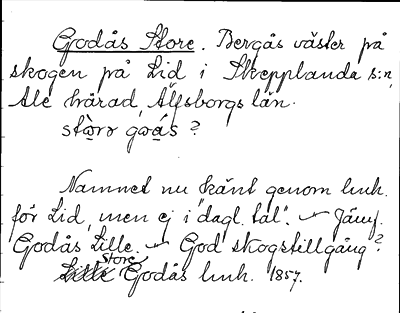 Godås Store. Bergås väster på
skogen på Lid i Skepplanda s:n,
Ale härad, Älfsborgs län.
stòrə goás?
Namnet nu känt genom luh.
för Lid, men ej i "dagl. tal". – Jämf.
Godås Lille. – God skogstillgång?
Store
Lille Godås luh. 1857.